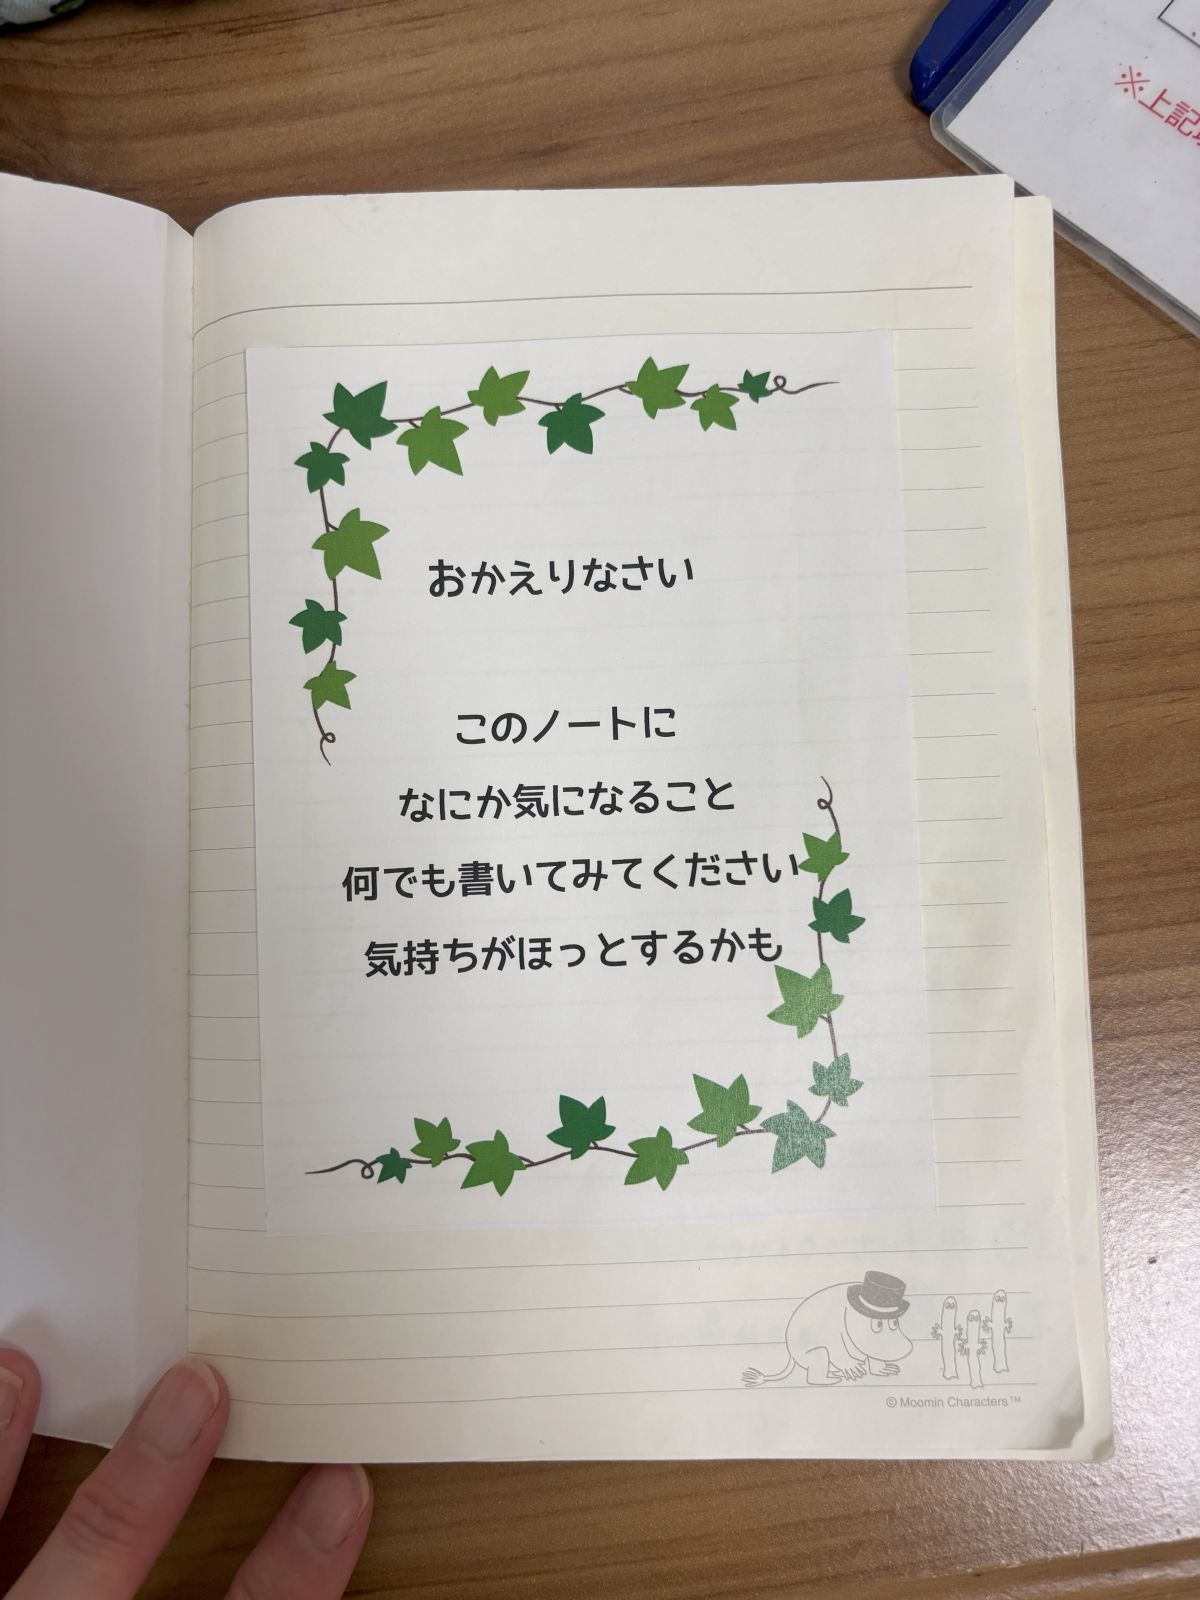 ※上記
おかえりなさい
このノートに
なにか気になること
何でも書いてみてください
気持ちがほっとするかも
© Moomin Characters™